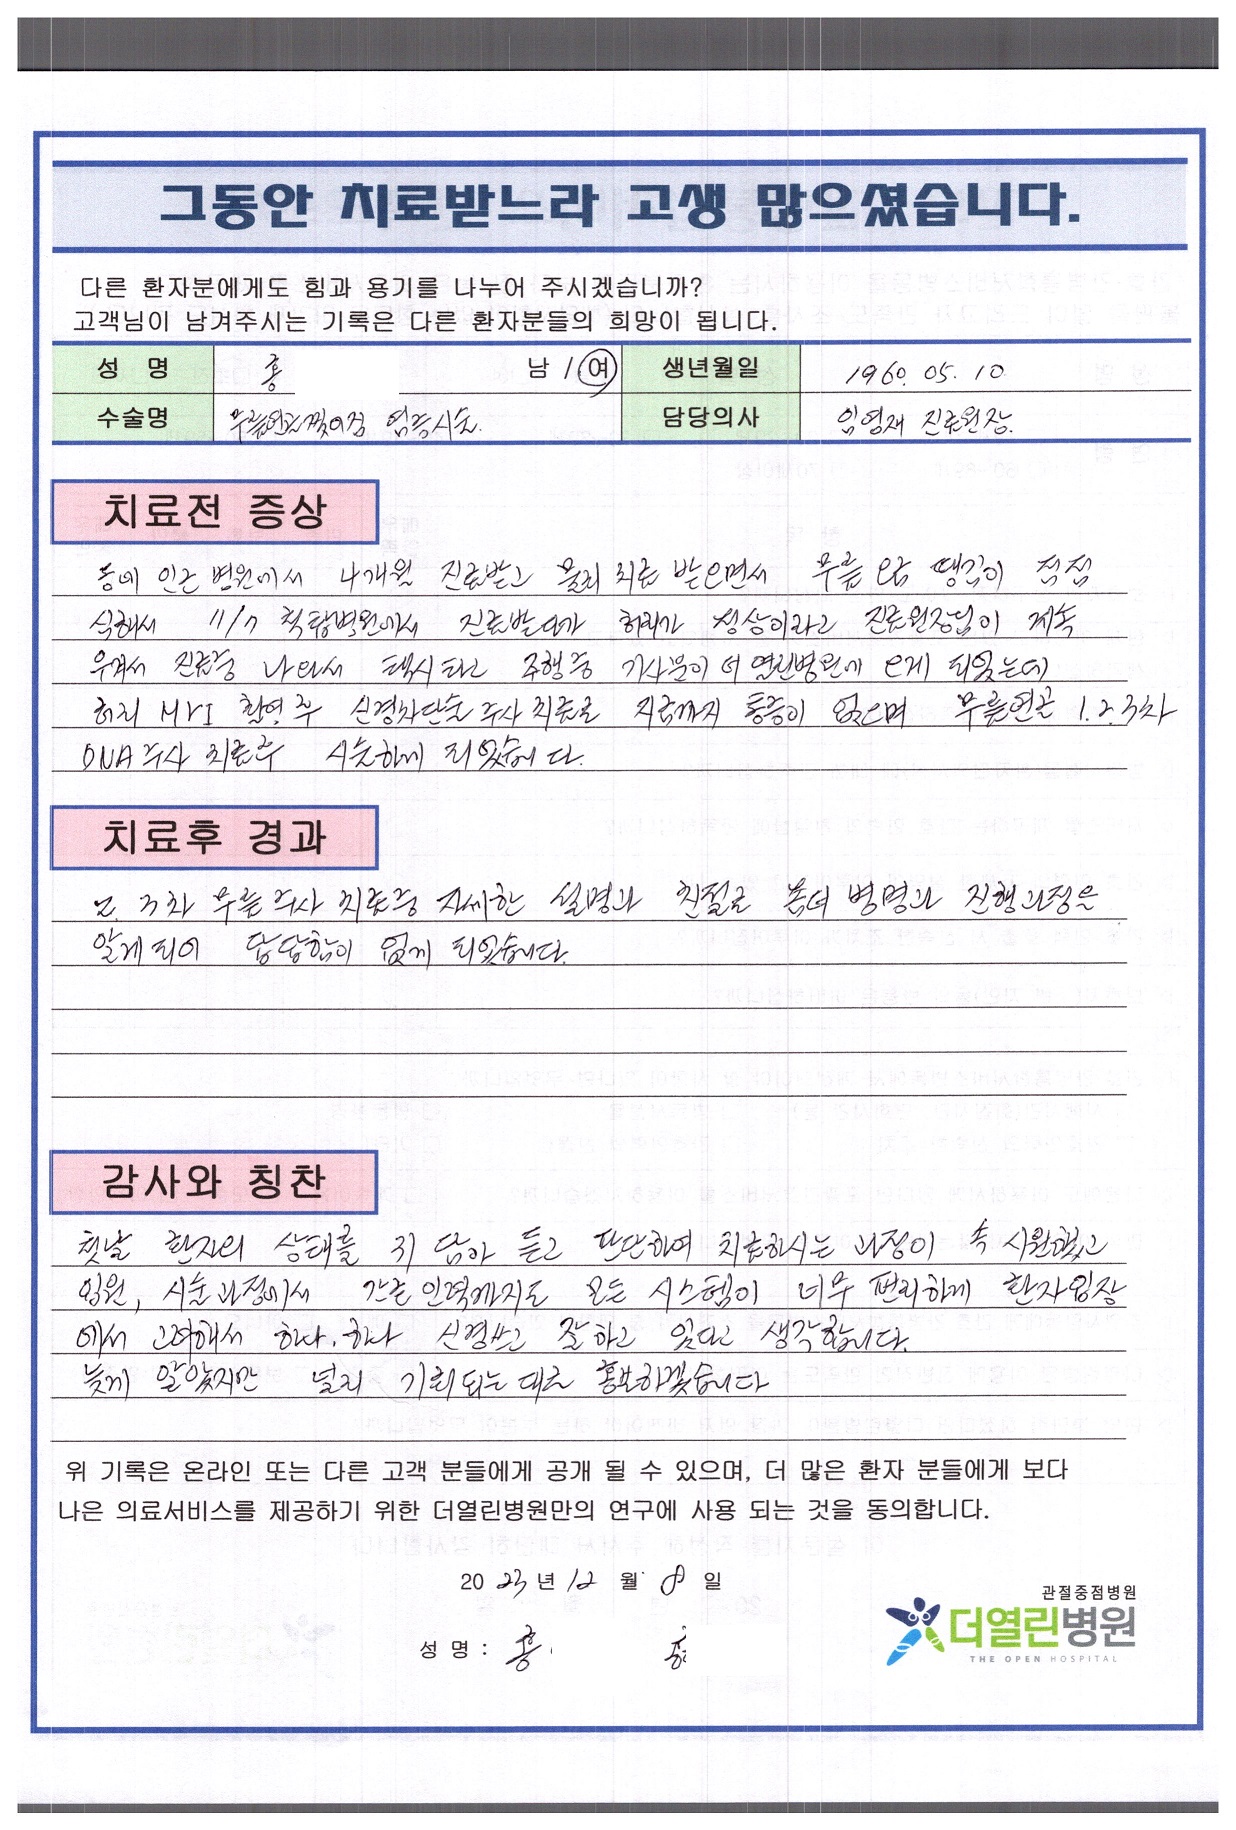 그동안 치료받느라 고생 많으셨습니다.
다른 환자분에게도 힘과 용기를 나누어 주시겠습니까?
고객님이 남겨주시는 기록은 다른 환자분들의 희망이 됩니다.
성 명 홍 남 / 여 생년월일 1960. 05. 10
수술명 무릎연골찢어짐 염증시술. 담당의사 임영재 진료원장.
치료전 증상
동네 인근 병원에서 4개월 진료받고 물리 치료 받으면서 무릎 땡김이 점점
심해서 11/7 척탑병원에서 진료받다가 허리가 정상이라고 진료원장님이 계속
우겨서 진료중 나와서 택시타고 주행중 기사분이 더 열린병원에 오게 되었는데
허리 MRI 촬영 후 신경차단술 주사 치료로 지금까지 통증이 없으며 무릎연골 1.2.3차
DNA 주사 치료후 시술하게 되었습니다.
치료후 경과
2. 3차 무릎 주사 치료중 자세한 설명과 친절로 좀더 병명과 진행과정을
알게 되어 답답함이 없게 되었습니다.
감사와 칭찬
첫날 환자의 상태를 귀 담아 듣고 판단하여 치료하시는 과정이 속 시원했고
입원, 시술과정에서 간호인력까지도 모든 시스템이 너무 편리하게 환자입장
에서 고려해서 하나.하나 신경쓰고 잘하고 있다고 생각합니다.
늦게 알았지만 널리 기회되는대로 홍보하겠습니다
위 기록은 온라인 또는 다른 고객 분들에게 공개 될 수 있으며, 더 많은 환자 분들에게 보다
나은 의료서비스를 제공하기 위한 더열린병원만의 연구에 사용 되는 것을 동의합니다.
20 23 년 12 월 8 일
성 명 : 홍
관절중점병원
더열린병원
THE OPEN HOSPITAL